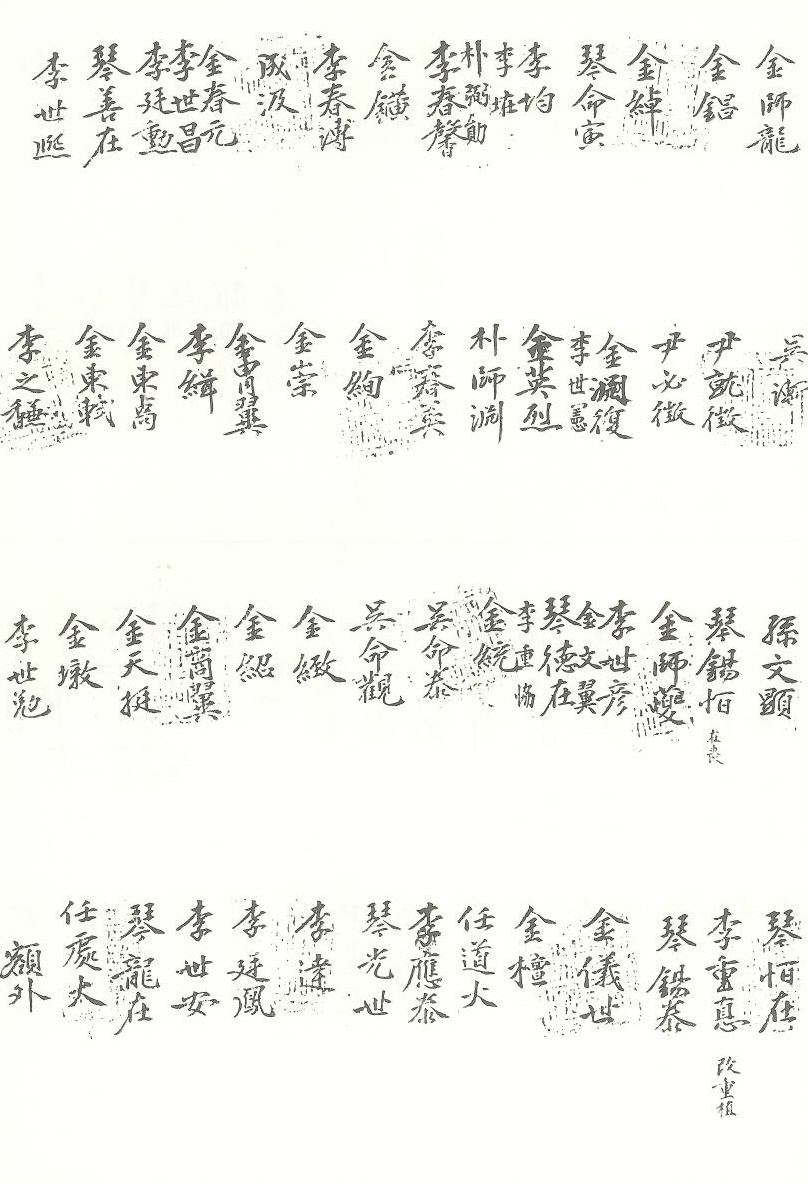 金師龍
金錩
金綽
琴命寅
李均
李堆
朴弼勛
李春馨
金鐄
李春溥
成汲
金春元
李世昌
李廷勳
琴善在
李世熙
吳濔
尹就徵
尹必徵
金瀾復
李世憲
金英烈
朴師淵
李春英
金絢
金崇
金胄翼
李緝
金東卨
金東軾
李之馦
孫文顯
琴錫恒
在喪
金師夔
李世彦
金文翼
琴德在
李重協
金統
吳命泰
吳命觀
金緻
金紹
金萬翼
金天挺
金墩
李世勉
琴恒在
李重惪
改重植
琴錫泰
金儀世
金檀
任道大
李應泰
琴光世
李達
李廷鳳
李世安
琴龍在
任處大
額外